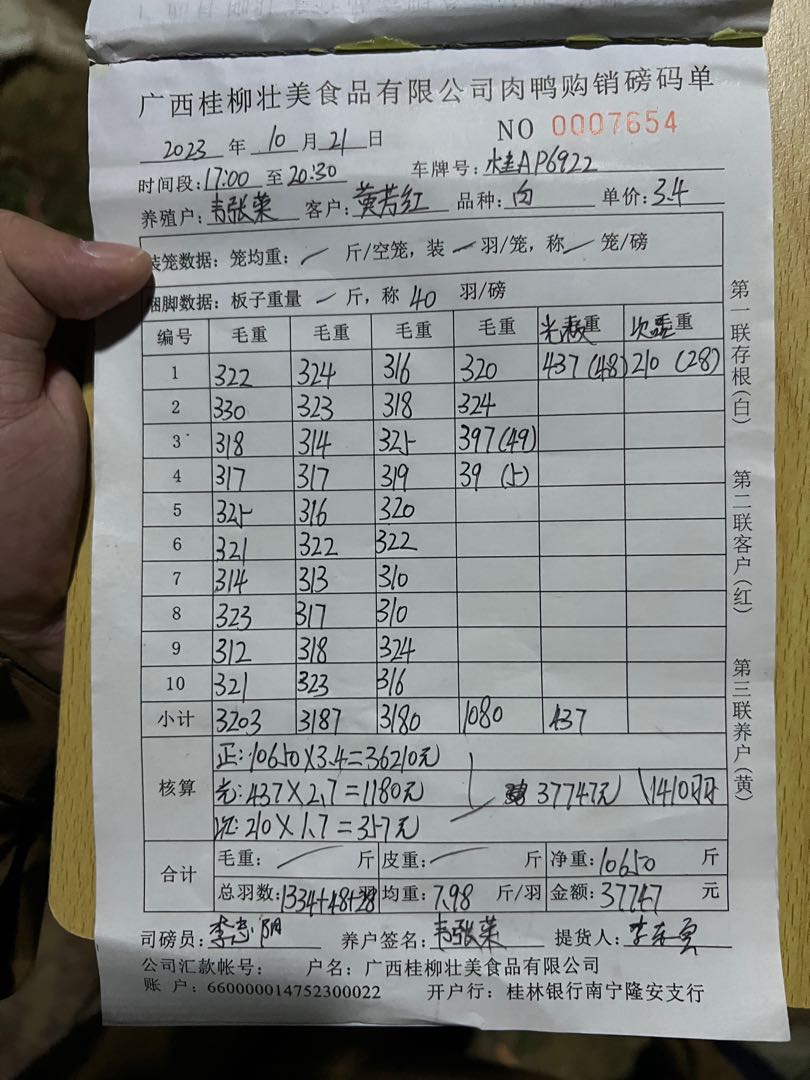 广西桂柳壮美食品有限公司肉鸭购销磅码单
2023 年 10 月 21 日 NO 0007654
时间段:17:00 至 20:30 车牌号: 桂AP6922
养殖户: 韦张荣 客户: 黄芳红 品种: 白 单价: 3.4
装笼数据: 笼均重: 斤/空笼, 装 羽/笼, 称 笼/磅
捆脚数据: 板子重量 斤, 称 40 羽/磅
编号 毛重 毛重 毛重 毛重 重 重
1 322 324 316 320 437 (48) 210 (28)
2 330 323 318 324
3 318 314 325 397(49)
4 317 317 319 39 (5)
5 325 316 320
6 321 322 322
7 314 313 310
8 323 317 310
9 312 318 324
10 321 323 316
小计 3203 3187 3180 1080 437
核算
正: 10650×3.4=36210元
光: 437×2.7=1180元 37747元 1410羽
次: 210×1.7=357元
合计
毛重: 斤 皮重: 斤 净重: 10650 斤
总羽数: 1334+48+28 羽 均重: 7.98 斤/羽 金额: 37747 元
司磅员: 李志阴 养户签名: 韦张荣 提货人: 李
公司汇款帐号: 户名: 广西桂柳壮美食品有限公司
账 户: 660000014752300022 开户行: 桂林银行南宁隆安支行
第一联存根(白)
第二联客户(红)
第三联养户(黄)